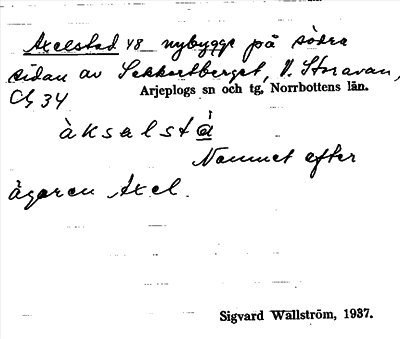 Axelstad 48 nybygge på södra
sidan av Sakkortberget, V. Storavan,
Ch 34
Arjeplogs sn och tg, Norrbottens län.
àksalstá
Namnet efter
ägaren Axel.
Sigvard Wallström, 1937.